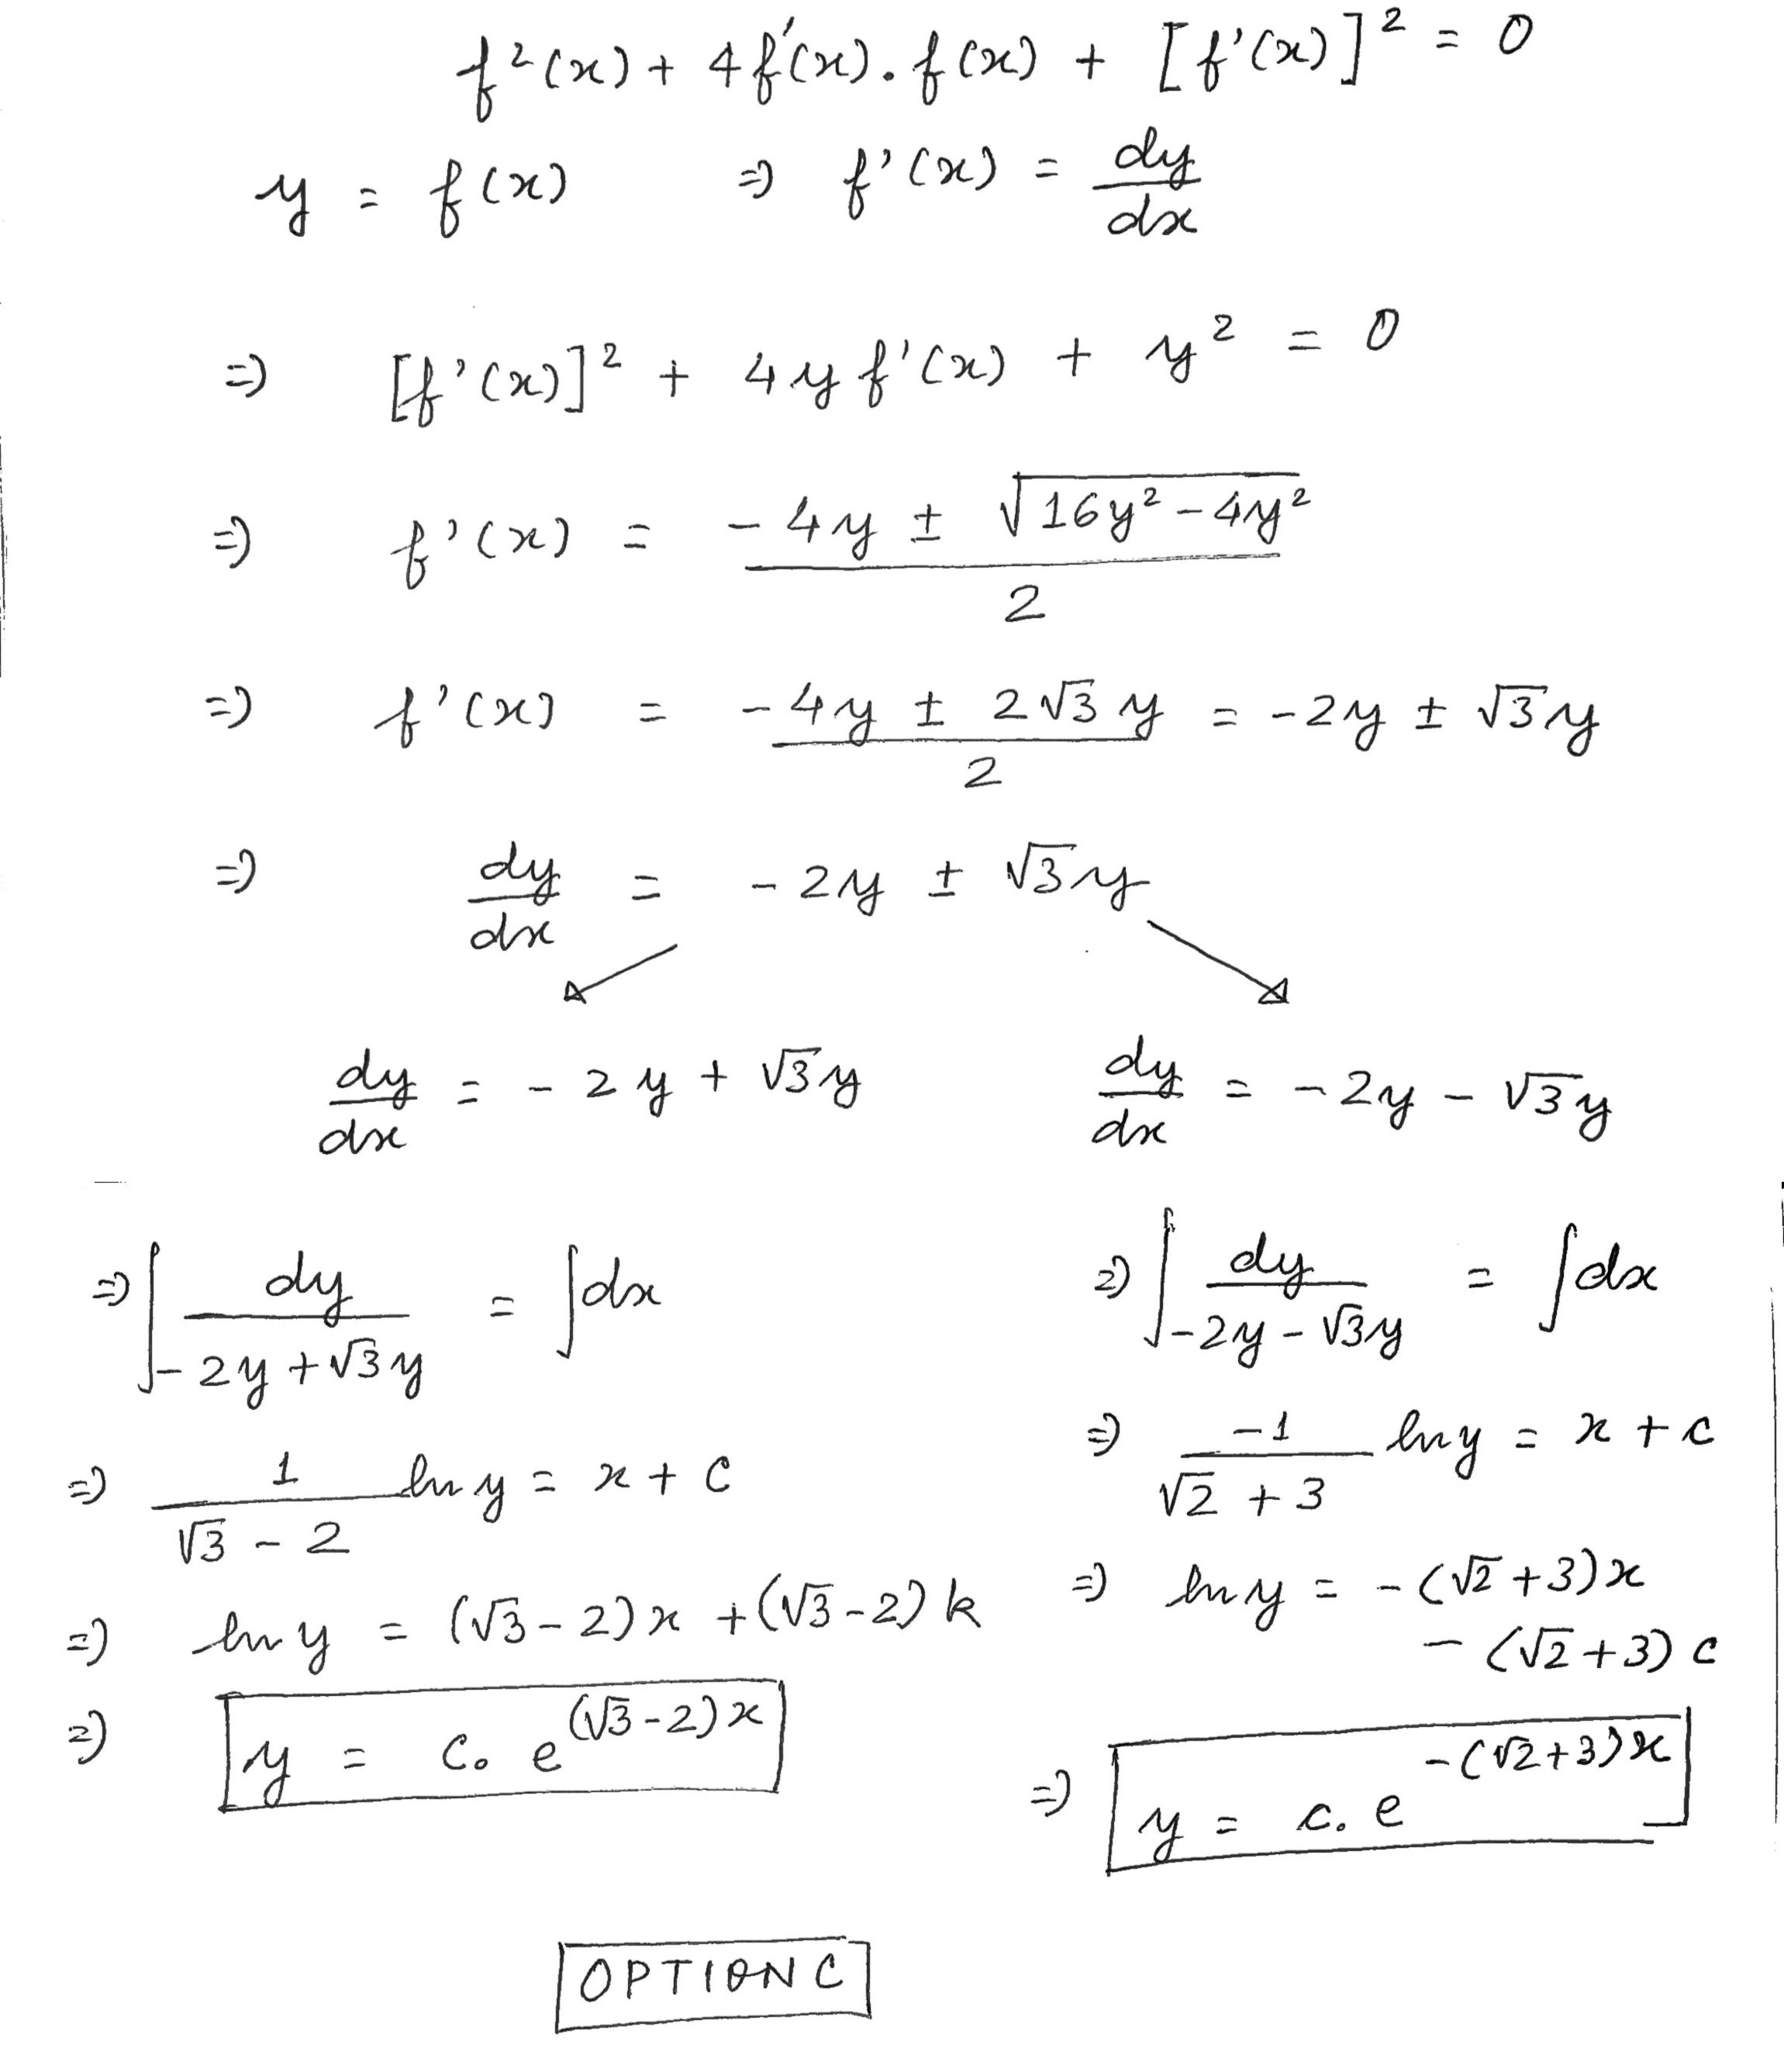 f²(x) + 4f'(x).f(x) + [f'(x)]² = 0
y = f(x) ⇒ f'(x) = dy/dx
⇒ [f'(x)]² + 4y f'(x) + y² = 0
⇒ f'(x) = (-4y ± √(16y²-4y²))/2
⇒ f'(x) = (-4y ± 2√3 y)/2 = -2y ± √3y
⇒ dy/dx = -2y ± √3y
dy/dx = -2y + √3y
⇒ ∫ dy/(-2y+√3y) = ∫dx
⇒ 1/(√3-2) ln y = x + C
⇒ ln y = (√3-2)x + (√3-2)k
⇒ y = c. e^((√3-2)x)
dy/dx = -2y - √3y
⇒ ∫ dy/(-2y-√3y) = ∫dx
⇒ -1/(√2+3) ln y = x + c
⇒ ln y = -(√2+3)x
-(√2+3)c
⇒ y = c. e^(-(√2+3)x)
OPTION C